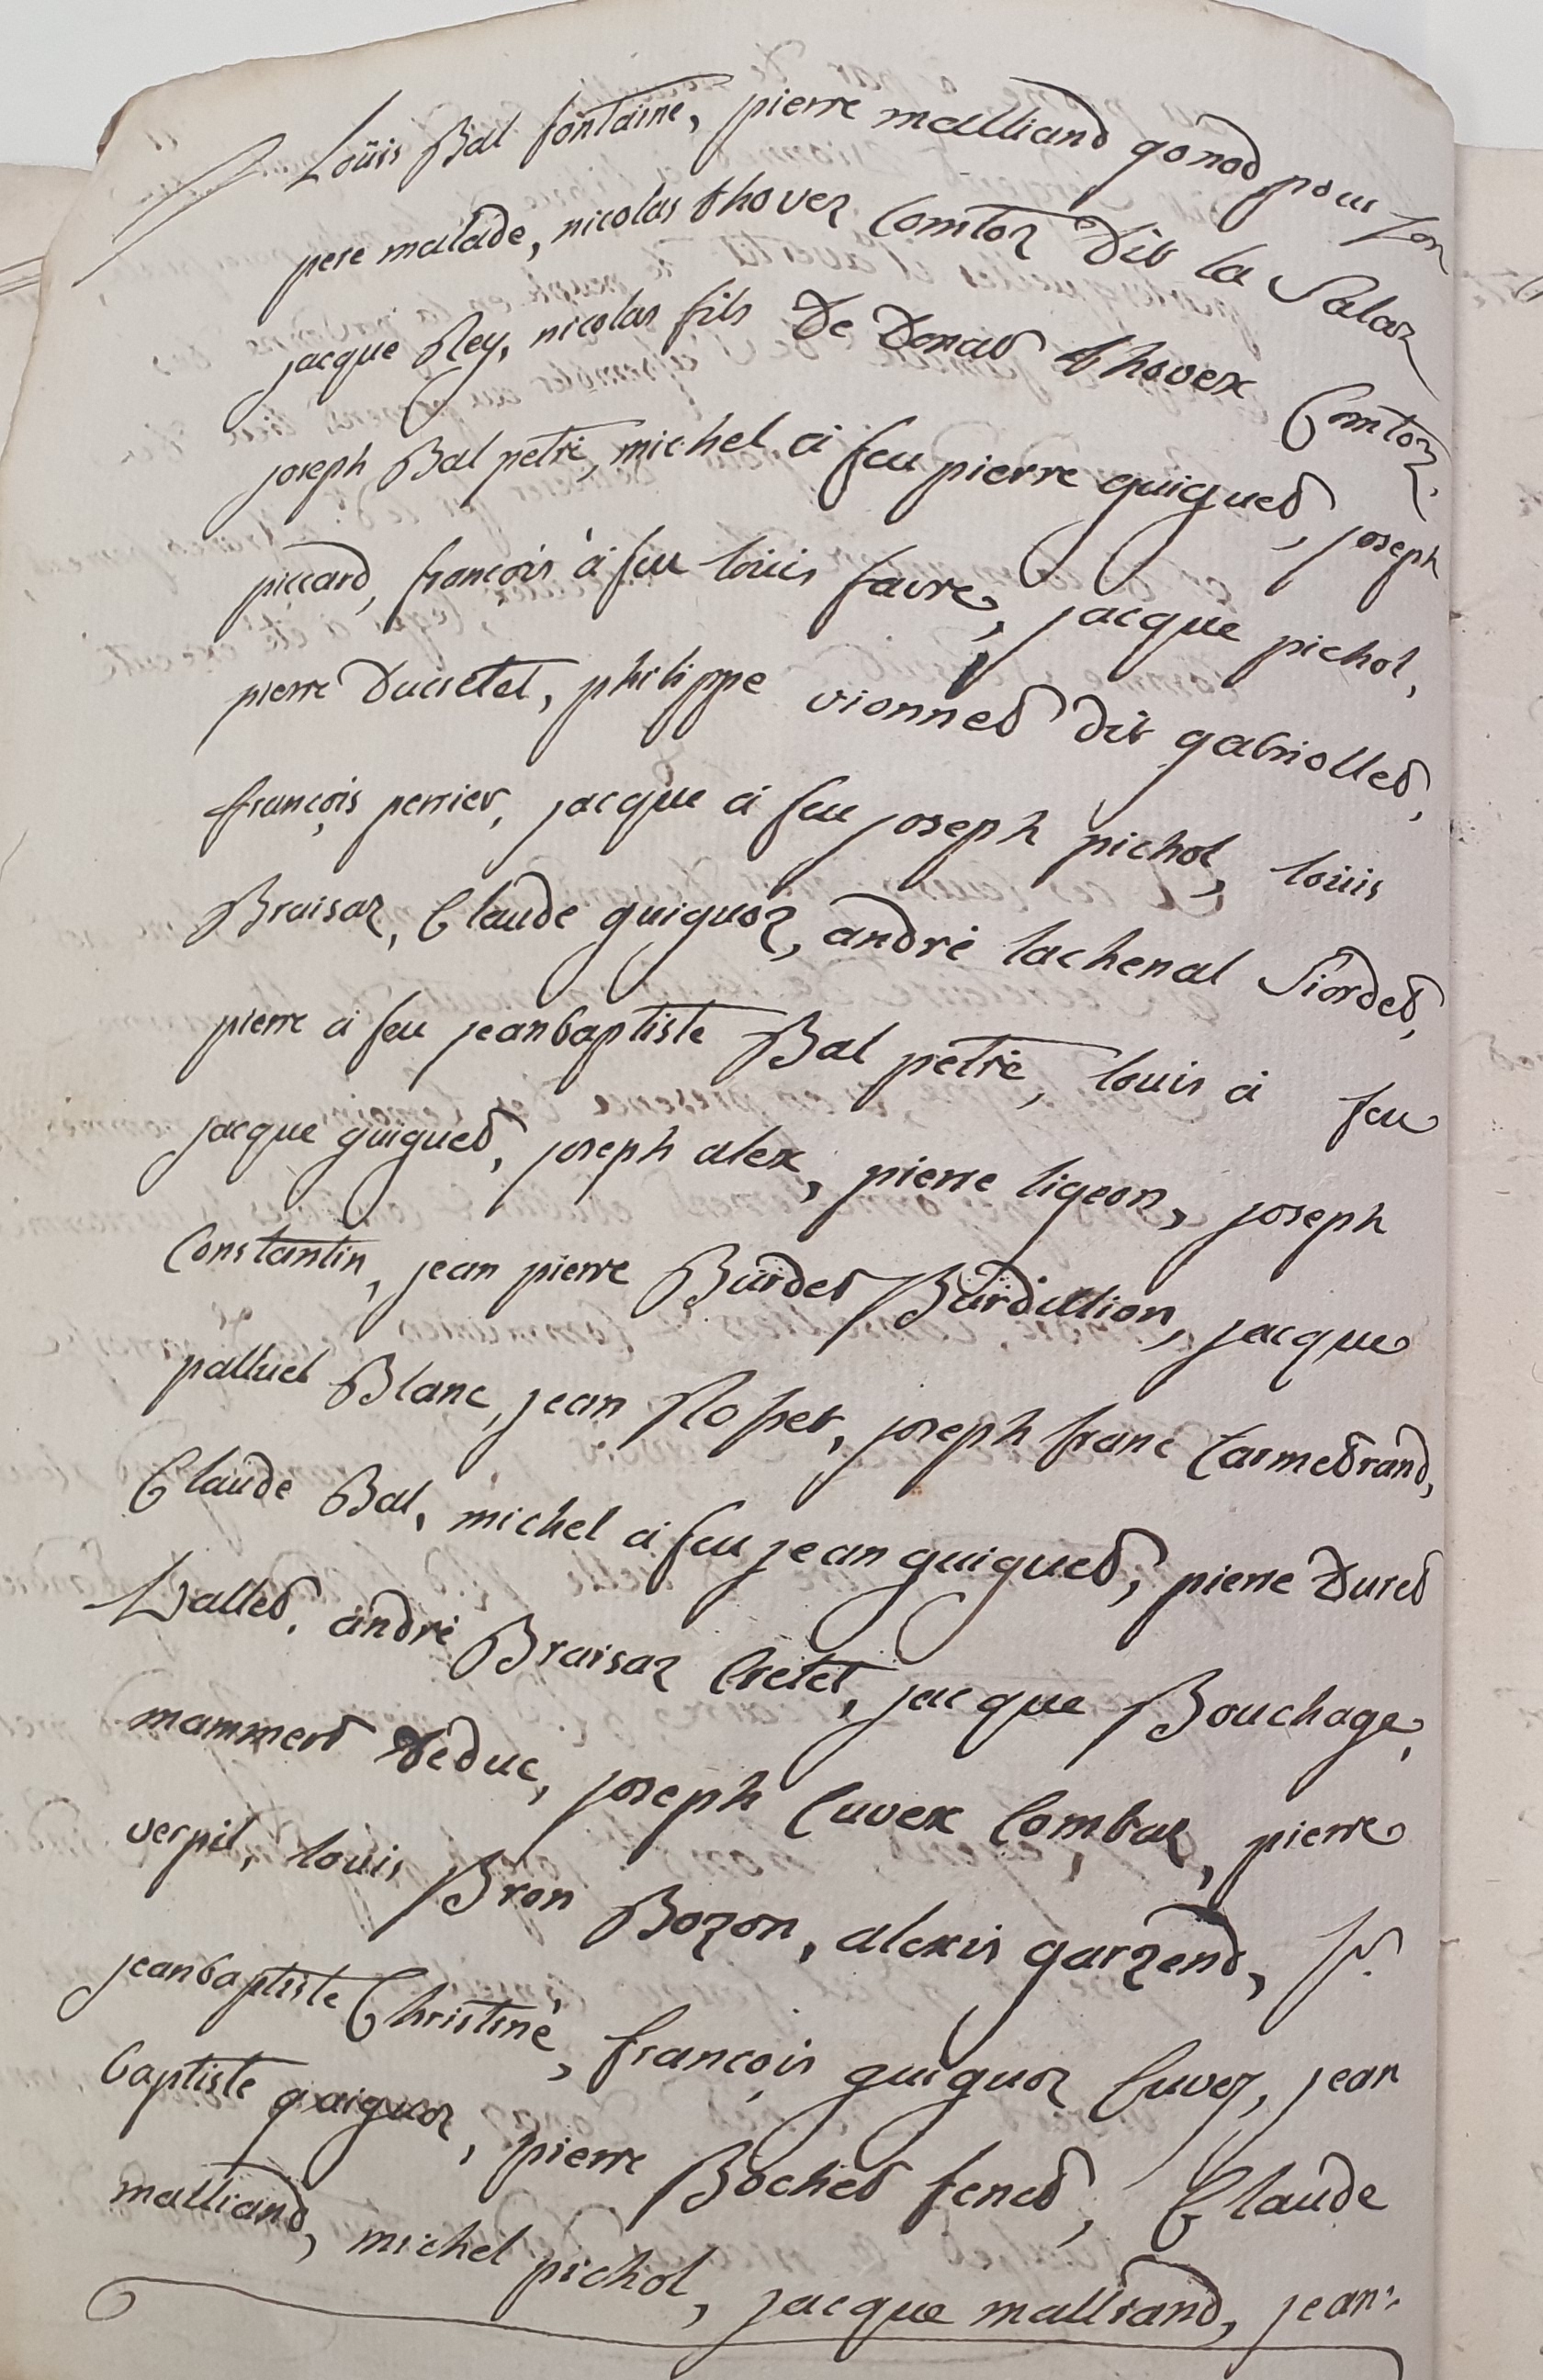 Loüis Bal fontaine, pierre malliand gonod pour son
pere malade, nicolas thovez Comtoz dit la Salaz
jacque Rey, nicolas fils De Donat thovex Comtoz.
joseph Bal petrè, michel à feu pierre guigued, joseph
piccard, françois à feu loüis favre, jacque pichol,
pierre Ducretet, philippe vionned dit gabriolled,
françois perrier, jacque à feu joseph pichol, loüis
Braisaz, Claude guiguoz, andrè lachenal Siorded,
pierre à feu jeanbaptiste Bal petrè, louis à feu
jacque guigued, joseph alex, pierre ligeon, joseph
Constantin, jean pierre Burded Burdillion, jacque
palluel Blanc, jean Rosset, joseph franc Carmedrand,
Claude Bal, michel à feu jean guigued, pierre Dured
Walled, andrè Braisaz Cretet, jacque Bouchage,
mammerd deduc, joseph Cuvex Combaz, pierre
verpil, louis Bron Bozon, alexis garzend, Sr.
jeanbaptiste Christinè, françois guiguoz Cuvez, jean
baptiste guiguoz, pierre Boched fened, Claude
malliand, michel pichol, jacque malliand, jean